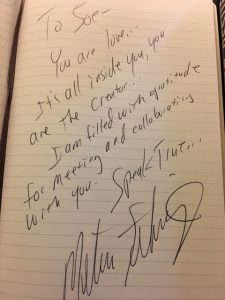 To Soe-
You are love...
It's all inside you, you
are the Creator...
I am filled with gratitude
for meeting and collaborating
with you.
Speak True...